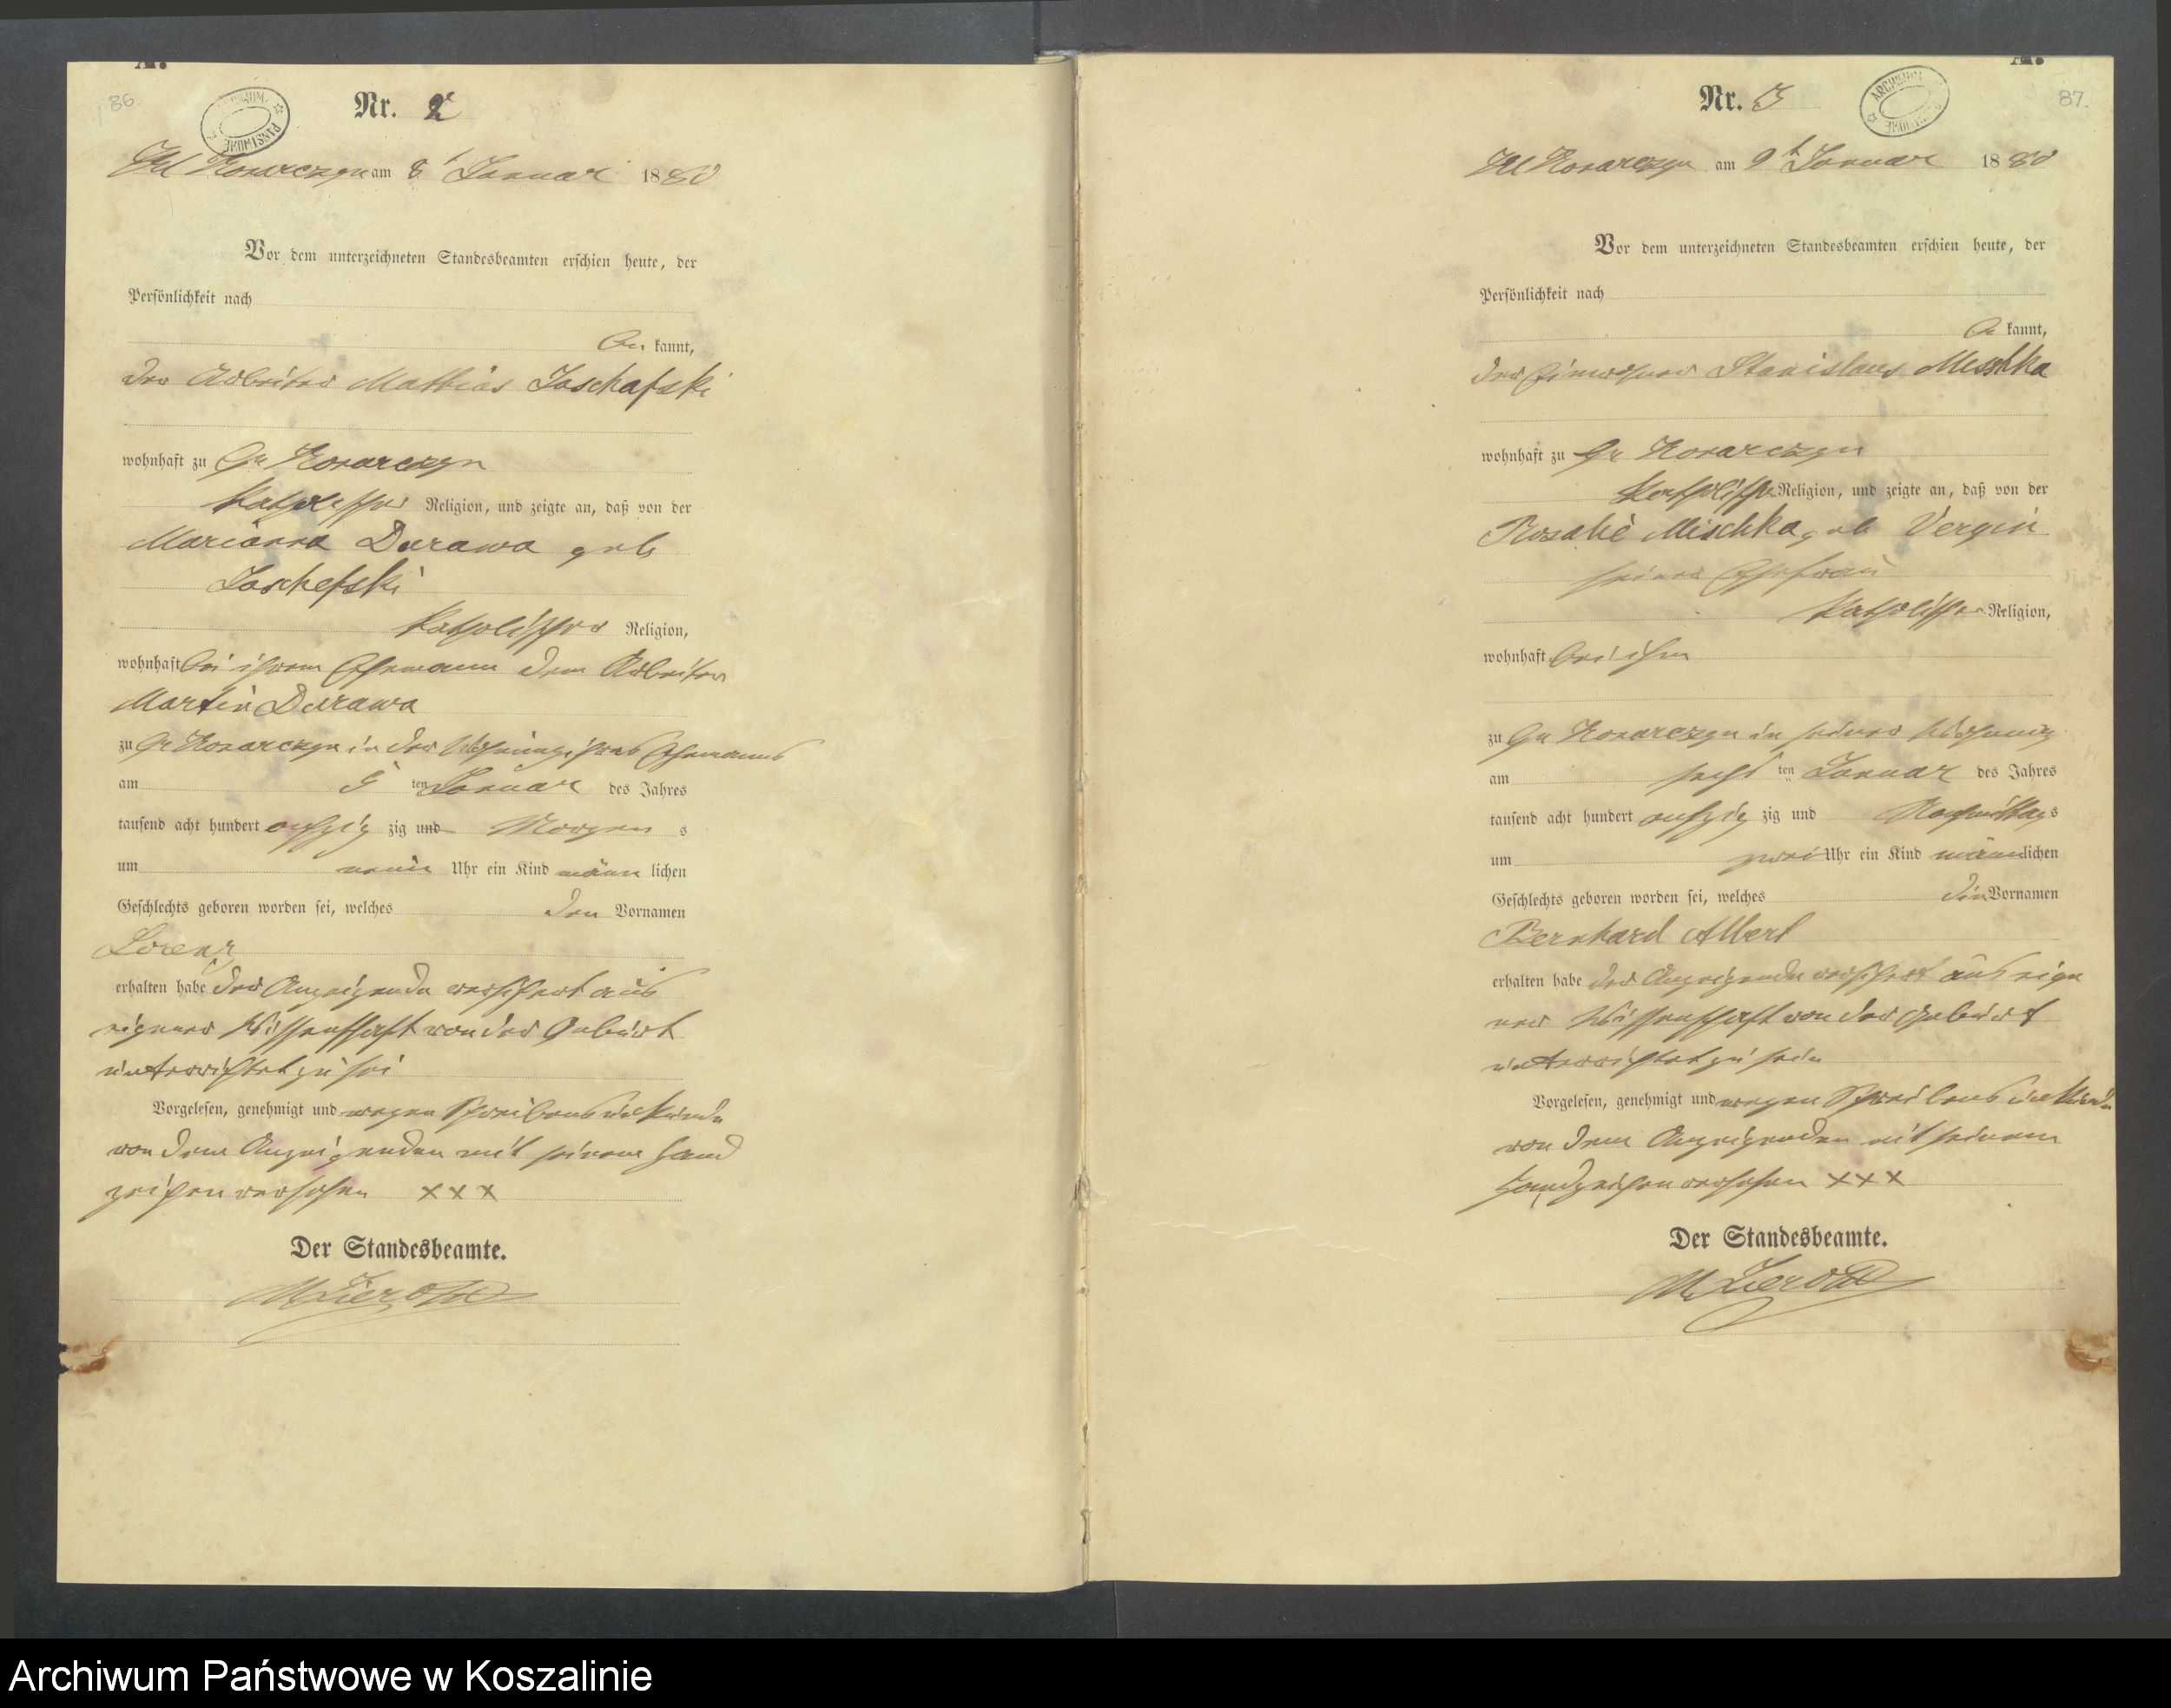 A.
86.
Nr. 2
Kl Konarczyn am 8t Januar 1880
Vor dem unterzeichneten Standesbeamten erschien heute, der
Persönlichkeit nach
be kannt,
der Arbeiter Mathias Joschafski
wohnhaft zu Gr Konarczyn
katholischer Religion, und zeigte an, daß von der
Marianna Durawa geb
Joschefski
katholischer Religion,
wohnhaft bei ihrem Ehemann dem Arbeiter
Martin Durawa
zu Gr Konarczyn in der Wohnung ihres Ehemanns
am ten Januar des Jahres
tausend acht hundert achtzig zig und Morgens
um neun Uhr ein Kind männ lichen
Geschlechts geboren worden sei, welches den Vornamen
Lorenz
erhalten habe der Anzeigende versichert aus
eigener Wissenschaft von der Geburt
unterrichtet zu sei
Vorgelesen, genehmigt und wegen Schreibensunkunde
von dem Anzeigenden mit seinem Hand
zeichen versehen xxx
Der Standesbeamte.
A.
87.
Nr. 3
ARCHIWUM PAŃSTWOWE
Kl Konarczyn am 9t Januar 1880
Vor dem unterzeichneten Standesbeamten erschien heute, der
Persönlichkeit nach
be kannt,
der Einwohner Stanislaus Meschka
wohnhaft zu Gr Konarczyn
katholischer Religion, und zeigte an, daß von der
Rosalie Mischka geb Vergin
seiner Ehefrau
katholischer Religion,
wohnhaft bei ihm
zu Gr Konarczyn in seiner Wohnung
am sechs ten Januar des Jahres
tausend acht hundert achtzig zig und Nachmittags
um zwei Uhr ein Kind männlichen
Geschlechts geboren worden sei, welches die Vornamen
Bernhard Albert
erhalten habe der Anzeigende versichert aus eige
ner Wissenschaft von der Geburt
unterrichtet zu sein
Vorgelesen, genehmigt und wegen Schreibensunkunde
von dem Anzeigenden mit seinem
Handzeichen versehen xxx
Der Standesbeamte.
Archiwum Państwowe w Koszalinie